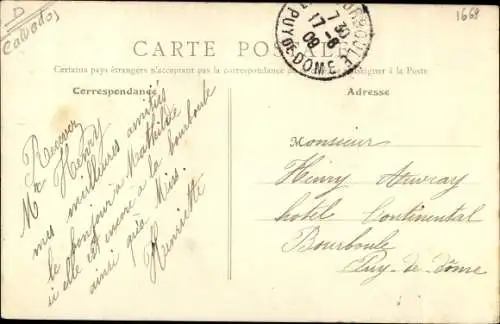 D
Calvados
1668
CARTE POSTALE
BOURBOULE
7 30
17-8
09
PUY-DE-DOME
Certains pays étrangers n'acceptent pas la correspondance
se renseigner à la Poste
Correspondance
Adresse
Recevez
Mr Henry
mes meilleures amitiés
le bonjour à Mathilde
si elle est encore a la bourboule
ainsi qu'a Miss.
Henriette
Monsieur
Henry Auvray
hotel Continental
Bourboule
Puy-de-dôme